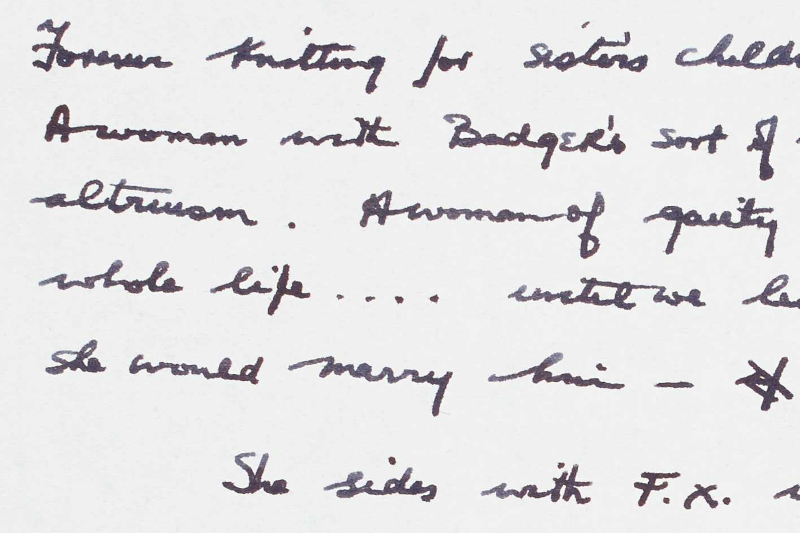 Forever knitting for sister's
A woman with Badger's sort of
altruism. A woman of gaiety
whole life .... until we
she would marry him —
She sides with F.X.